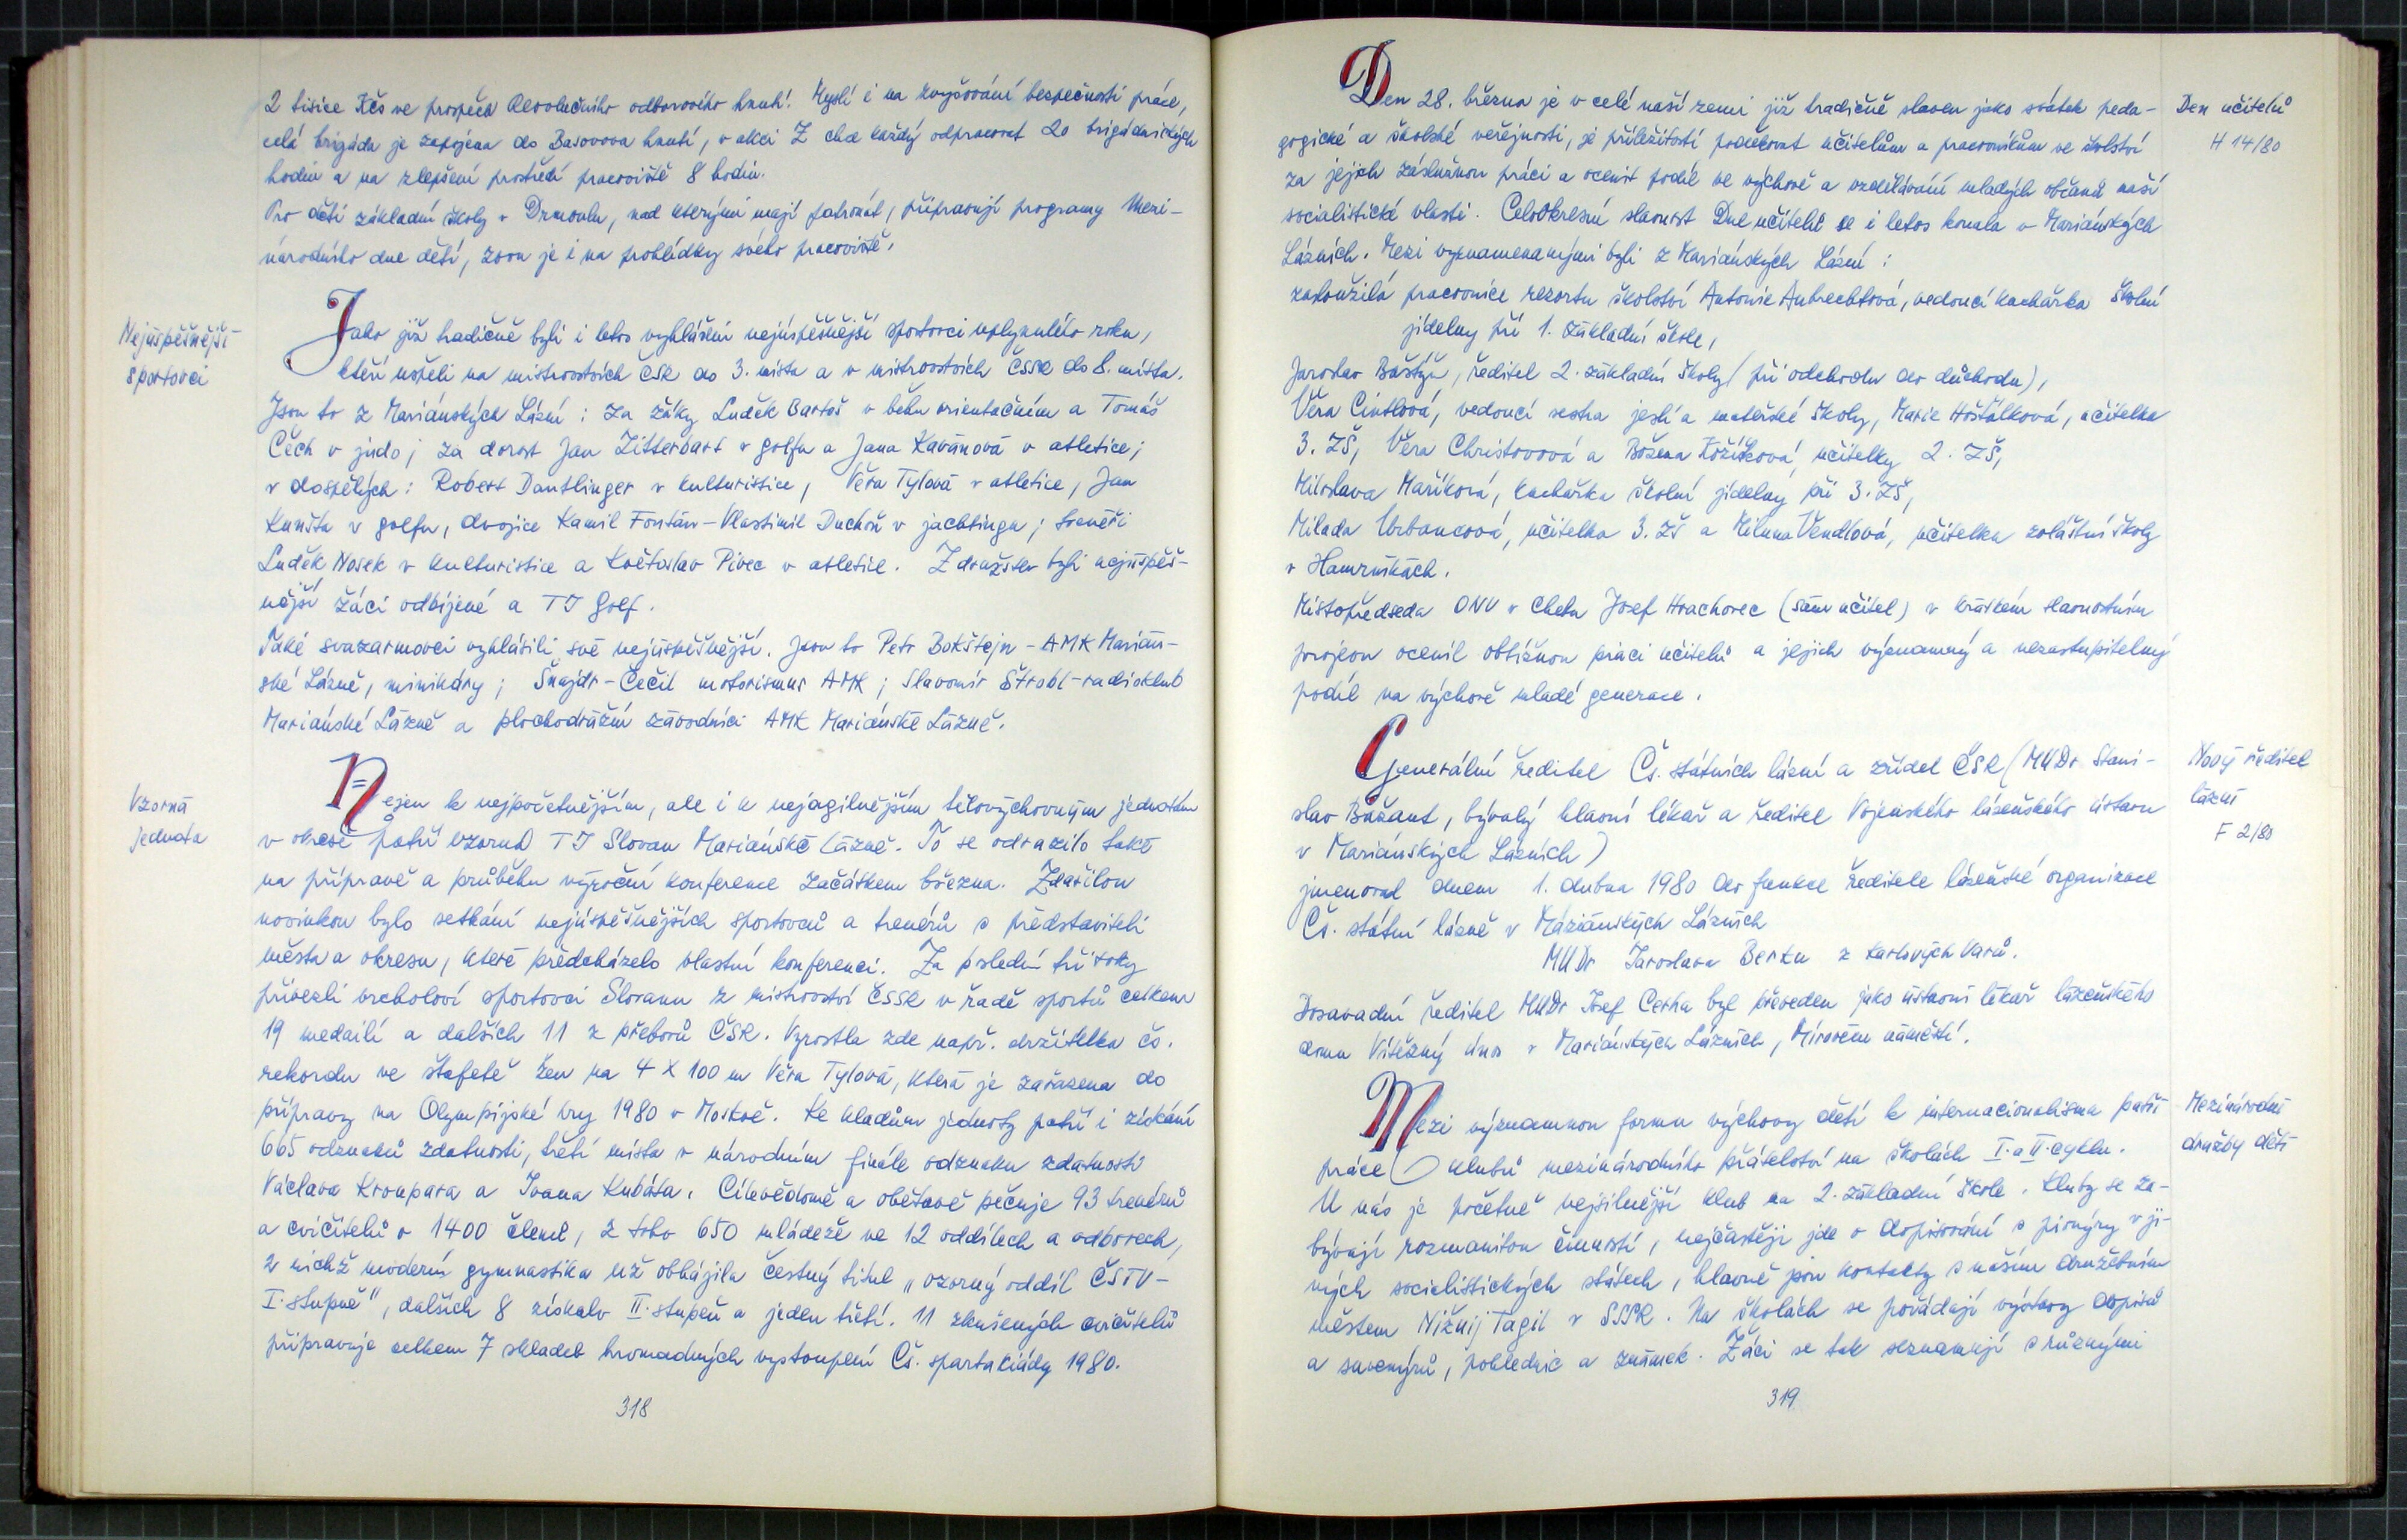 2 tisíce Kčs ve prospěch Revolučního odborového hnutí. Myslí i na zvyšování bezpečnosti práce,
celá brigáda je zapojena do Basovova hnutí, v akci Z chce každý odpracovat 20 brigádnických
hodin a na zlepšení prostředí pracoviště 8 hodin.
Pro děti základní školy v Drmoulu, nad kterými mají patronát, připravují programy Mezi-
národního dne dětí, zvou je i na prohlídky svého pracoviště.
Nejúspěšnější
sportovci
Jako již tradičně byli i letos vyhlášeni nejúspěšnější sportovci uplynulého roku,
kteří uspěli na mistrovstvích ČSR do 3. místa a v mistrovstvích ČSSR do 8. místa.
Jsou to z Mariánských Lázní: za žáky Luděk Bartoš v běhu orientačním a Tomáš
Čech v judo; za dorost Jan Zitterbart v golfu a Jana Kavánová v atletice;
v dospělých: Robert Dantlinger v kulturistice, Věra Tylová v atletice, Jan
Kunšta v golfu, dvojice Kamil Fontán-Vlastimil Duchoň v jachtingu; trenéři
Luděk Nosek v kulturistice a Květoslav Pivec v atletice. Z družstev byli nejúspěš-
nější žáci odbíjené a TJ Golf.
Také svazarmovci vyhlásili své nejúspěšnější. Jsou to Petr Bokštejn - AMK Marián-
ské Lázně, minikáry; Šnajdr-Čečil motorismus AMK; Slavomír Štrobl-radioklub
Mariánské Lázně a plochodrážní závodníci AMK Mariánské Lázně.
Vzorná
jednota
Nejen k nejpočetnějším, ale i k nejagilnějším tělovýchovným jednotám
v okrese patří vzorná TJ Slovan Mariánské Lázně. To se odrazilo také
na přípravě a průběhu výroční konference začátkem března. Zdařilou
novinkou bylo setkání nejúspěšnějších sportovců a trenérů s představiteli
města a okresu, které předcházelo vlastní konferenci. Za poslední tři roky
přivezli vrcholoví sportovci Slovanu z mistrovství ČSSR v řadě sportů celkem
19 medailí a dalších 11 z přeborů ČSR. Vyrostla zde např. držitelka čs.
rekordu ve štafetě žen na 4 x 100 m Věra Tylová, která je zařazena do
přípravy na Olympijské hry 1980 v Moskvě. Ke kladům jednoty patří i získání
665 odznaků zdatnosti, třetí místa v národním finále odznaku zdatnosti
Václava Kroupara a Ivana Kubáta. Cílevědomě a obětavě pečuje 93 trenérů
a cvičitelů o 1400 členů, z toho 650 mládeže ve 12 oddílech a odborech,
z nichž moderní gymnastika už obhájila čestný titul „vzorný oddíl ČSTV-
I. stupně", dalších 8 získalo II. stupeň a jeden třetí. 11 zkušených cvičitelů
připravuje celkem 7 skladeb hromadných vystoupení Čs. spartakiády 1980.
318
Den 28. března je v celé naší zemi již tradičně slaven jako svátek peda-
gogické a školské veřejnosti, je příležitostí poděkovat učitelům a pracovníkům ve školství
za jejich záslužnou práci a ocenit podíl ve výchově a vzdělávání mladých občanů naší
socialistické vlasti. Celookresní slavnost Dne učitelů se i letos konala v Mariánských
Lázních. Mezi vyznamenanými byli z Mariánských Lázní:
zasloužilá pracovnice rezortu školství Antonie Aubrechtová, vedoucí kuchařka školní
jídelny při 1. základní škole,
Jaroslav Baštýř, ředitel 2. základní školy (při odchodu do důchodu),
Věra Cintlová, vedoucí sestra jeslí a mateřské školy, Marie Hošťálková, učitelka
3. ZŠ, Věra Christovová a Božena Kožíšková, učitelky 2. ZŠ,
Miloslava Maříková, kuchařka školní jídelny při 3. ZŠ,
Milada Urbancová, učitelka 3. ZŠ a Miluna Vendlová, učitelka zvláštní školy
v Hamrníkách.
Místopředseda ONV v Chebu Josef Hrachovec (sám učitel) v krátkém slavnostním
projevu ocenil obtížnou práci učitelů a jejich významný a nezastupitelný
podíl na výchově mladé generace.
Den učitelů
H 14/80
Generální ředitel Čs. státních lázní a zřídel ČSR (MUDr Stani-
slav Bažant, bývalý hlavní lékař a ředitel Vojenského lázeňského ústavu
v Mariánských Lázních)
jmenoval dnem 1. dubna 1980 do funkce ředitele lázeňské organizace
Čs. státní lázně v Mariánských Lázních
MUDr Jaroslava Berku z Karlových Varů.
Dosavadní ředitel MUDr Josef Cerha byl převeden jako ústavní lékař lázeňského
domu Vítězný únor v Mariánských Lázních, Mírovém náměstí.
Nový ředitel
lázní
F 2/80
Mezi významnou formu výchovy dětí k internacionalismu patří
práce klubů mezinárodního přátelství na školách I. a II. cyklu.
U nás je početně nejsilnější klub na 2. základní škole. Kluby se za-
bývají rozmanitou činností, nejčastěji jde o dopisování s pionýry v ji-
ných socialistických státech, hlavně jsou kontakty s naším družebním
městem Nižnij Tagil v SSSR. Na školách se pořádají výstavy dopisů
a suvenýrů, pohlednic a známek. Žáci se tak seznamují s různými
Mezinárodní
družby dětí
319